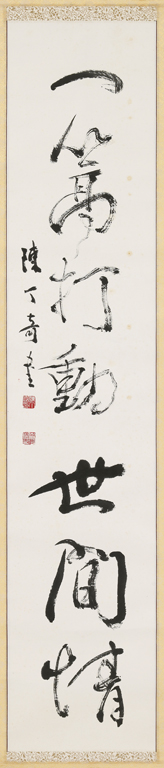 一篙打動世間情
陳丁奇書